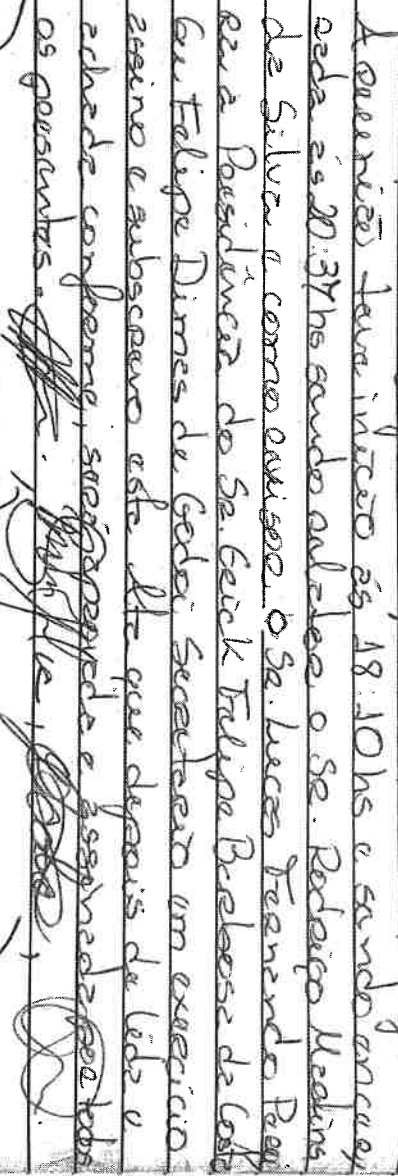 A reunião teve início às 18:10hs e sendo encer
rada às 20:37hs sendo auleteo o Sr. Rodrigo Medins
da Silva e como avisoro o Sr. Lucas Fernando Paes
era a Presidência do Sr. Erick Felipe Barbosa da Costa
Eu Felipe Dimas de Godoi Secretario em exercicio
assino e subscrevo este Ata que depois de lida e
achada conforme, será aprovada e assinada por todos
os presentes.